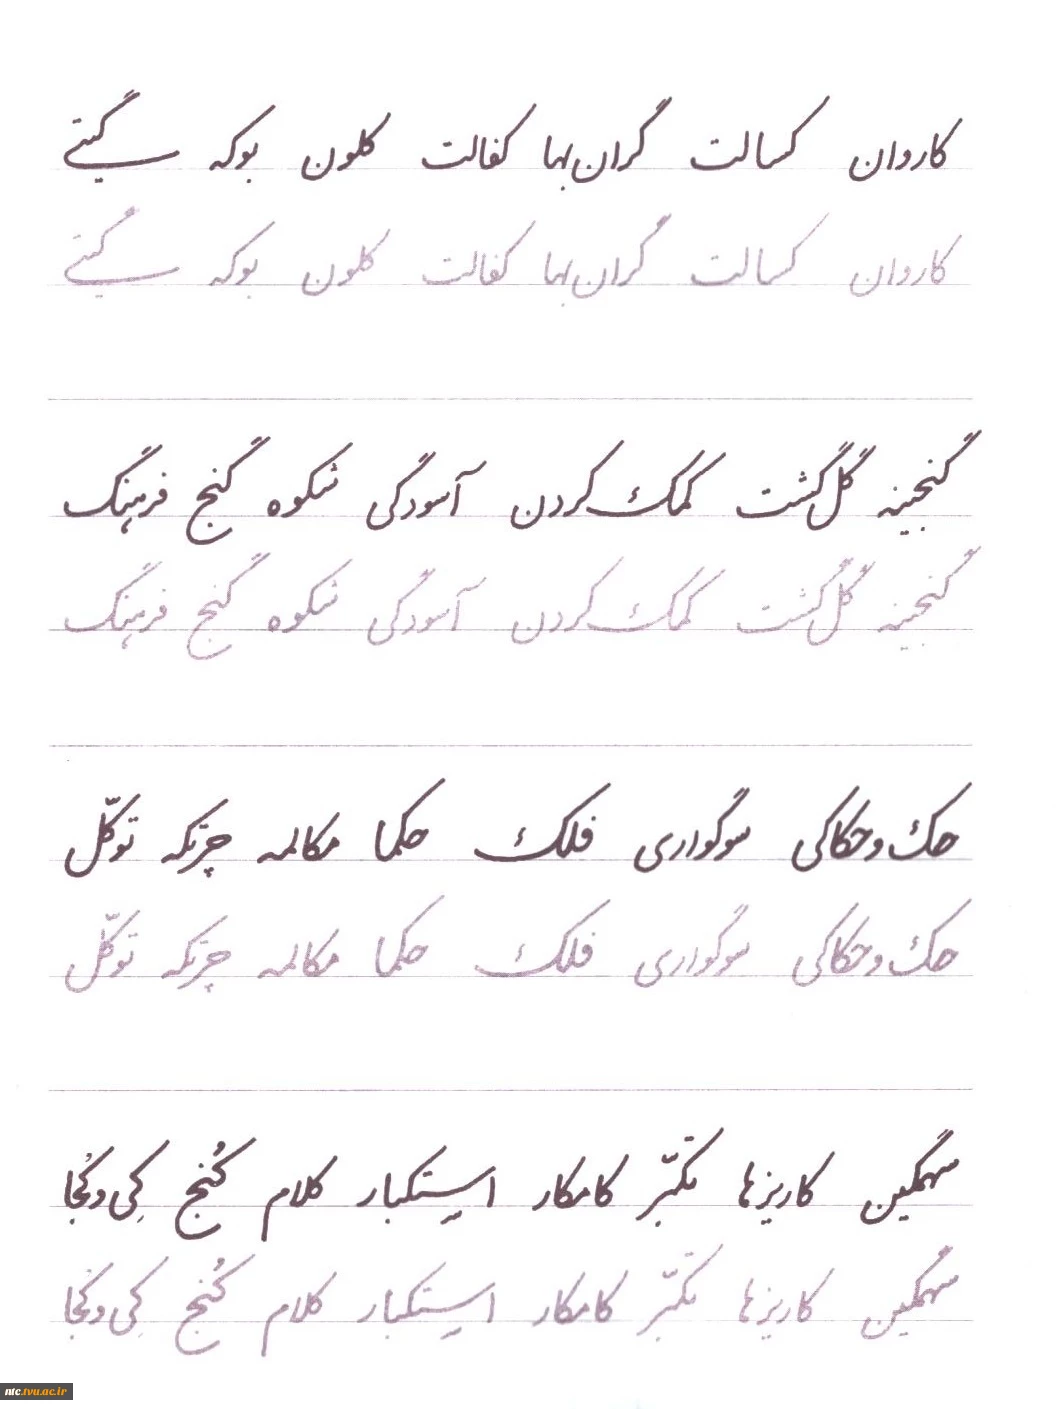 کاروان کسالت گران‌بها کفالت کلون بوکه گیتی
کاروان کسالت گران‌بها کفالت کلون بوکه گیتی
گنجینه گل‌گشت کمک‌کردن آسودگی شکوه گنج فرهنگ
گنجینه گل‌گشت کمک‌کردن آسودگی شکوه گنج فرهنگ
حک‌وحکاکی سوگواری فلک حکما مکالمه چرتکه توکّل
حک‌وحکاکی سوگواری فلک حکما مکالمه چرتکه توکّل
سهمگین کاریزها تکبّر کامکار استکبار کلام کُنج کِی‌وکُجا
سهمگین کاریزها تکبّر کامکار استکبار کلام کُنج کِی‌وکُجا
ntc.tvu.ac.ir